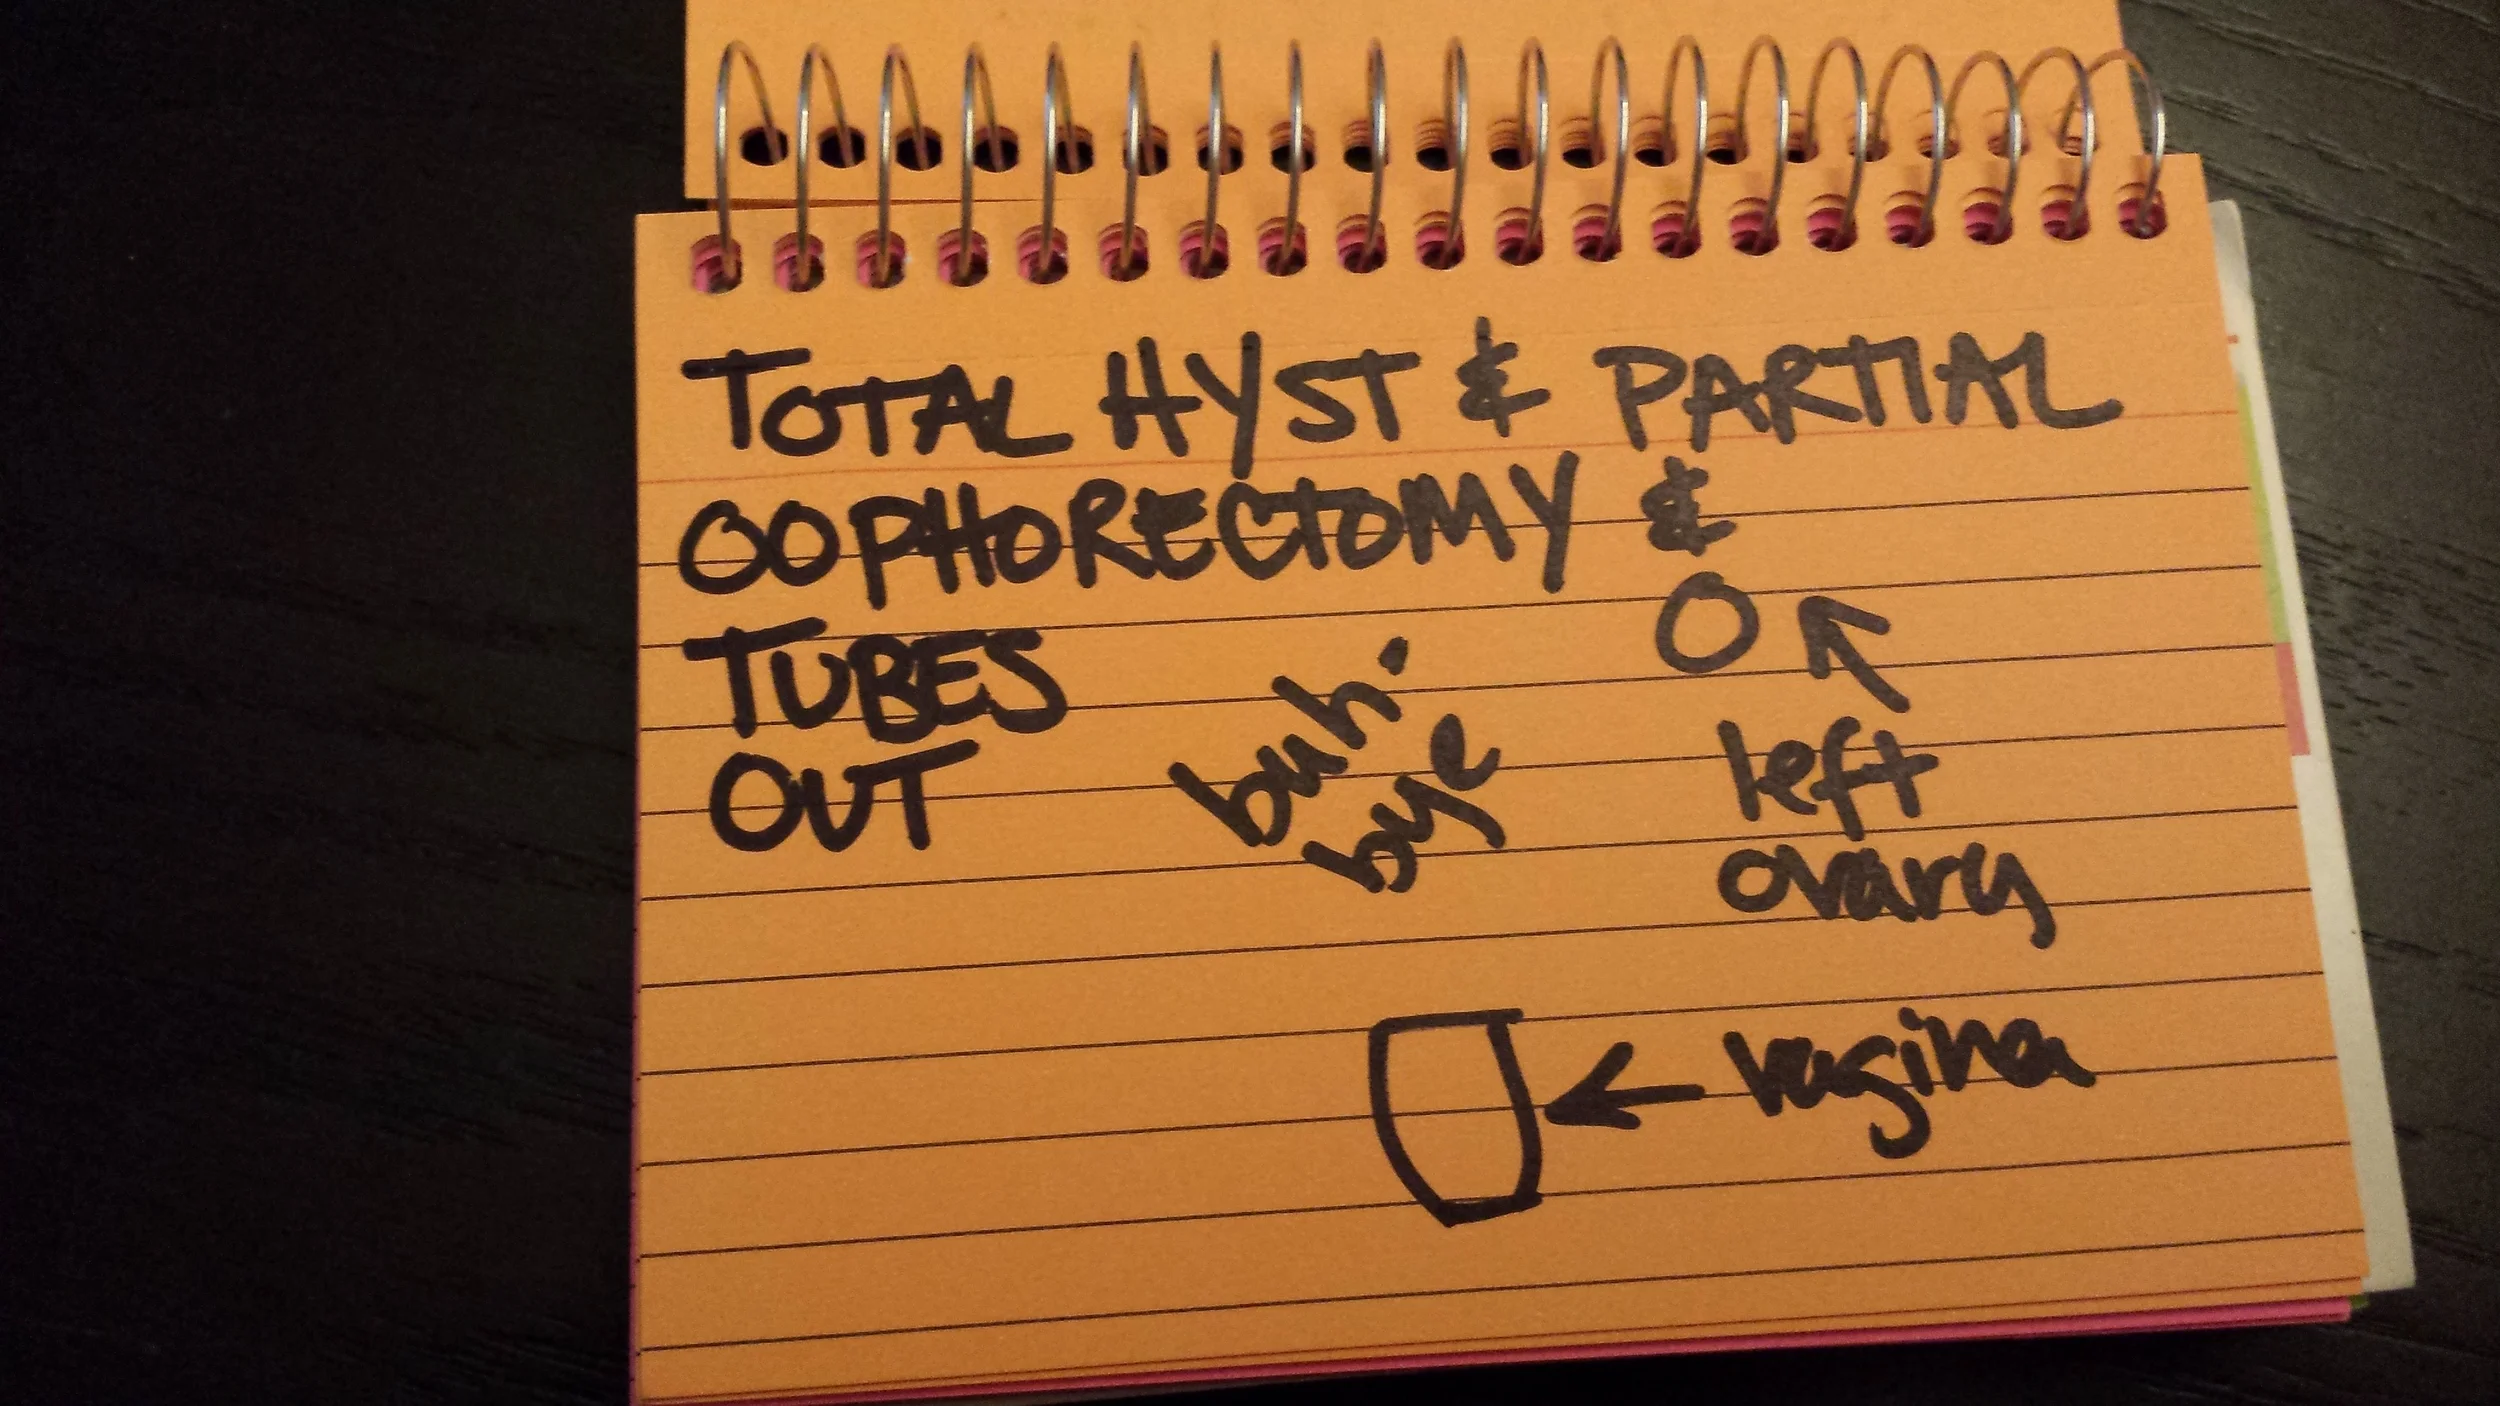 TOTAL HYST & PARTIAL
OOPHORECTOMY &
TUBES
OUT
buh.
bye
left
ovary
vagina